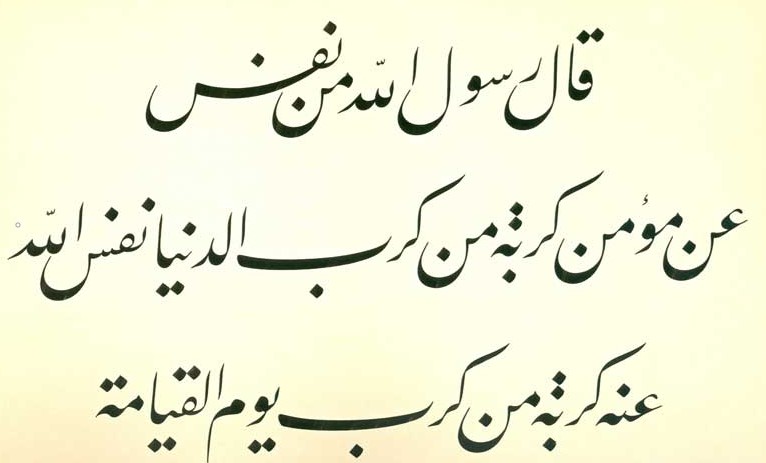 قال رسول الله من نفس
عن مؤمن كربة من كرب الدنيا نفس الله
عنه كربة من كرب يوم القيامة